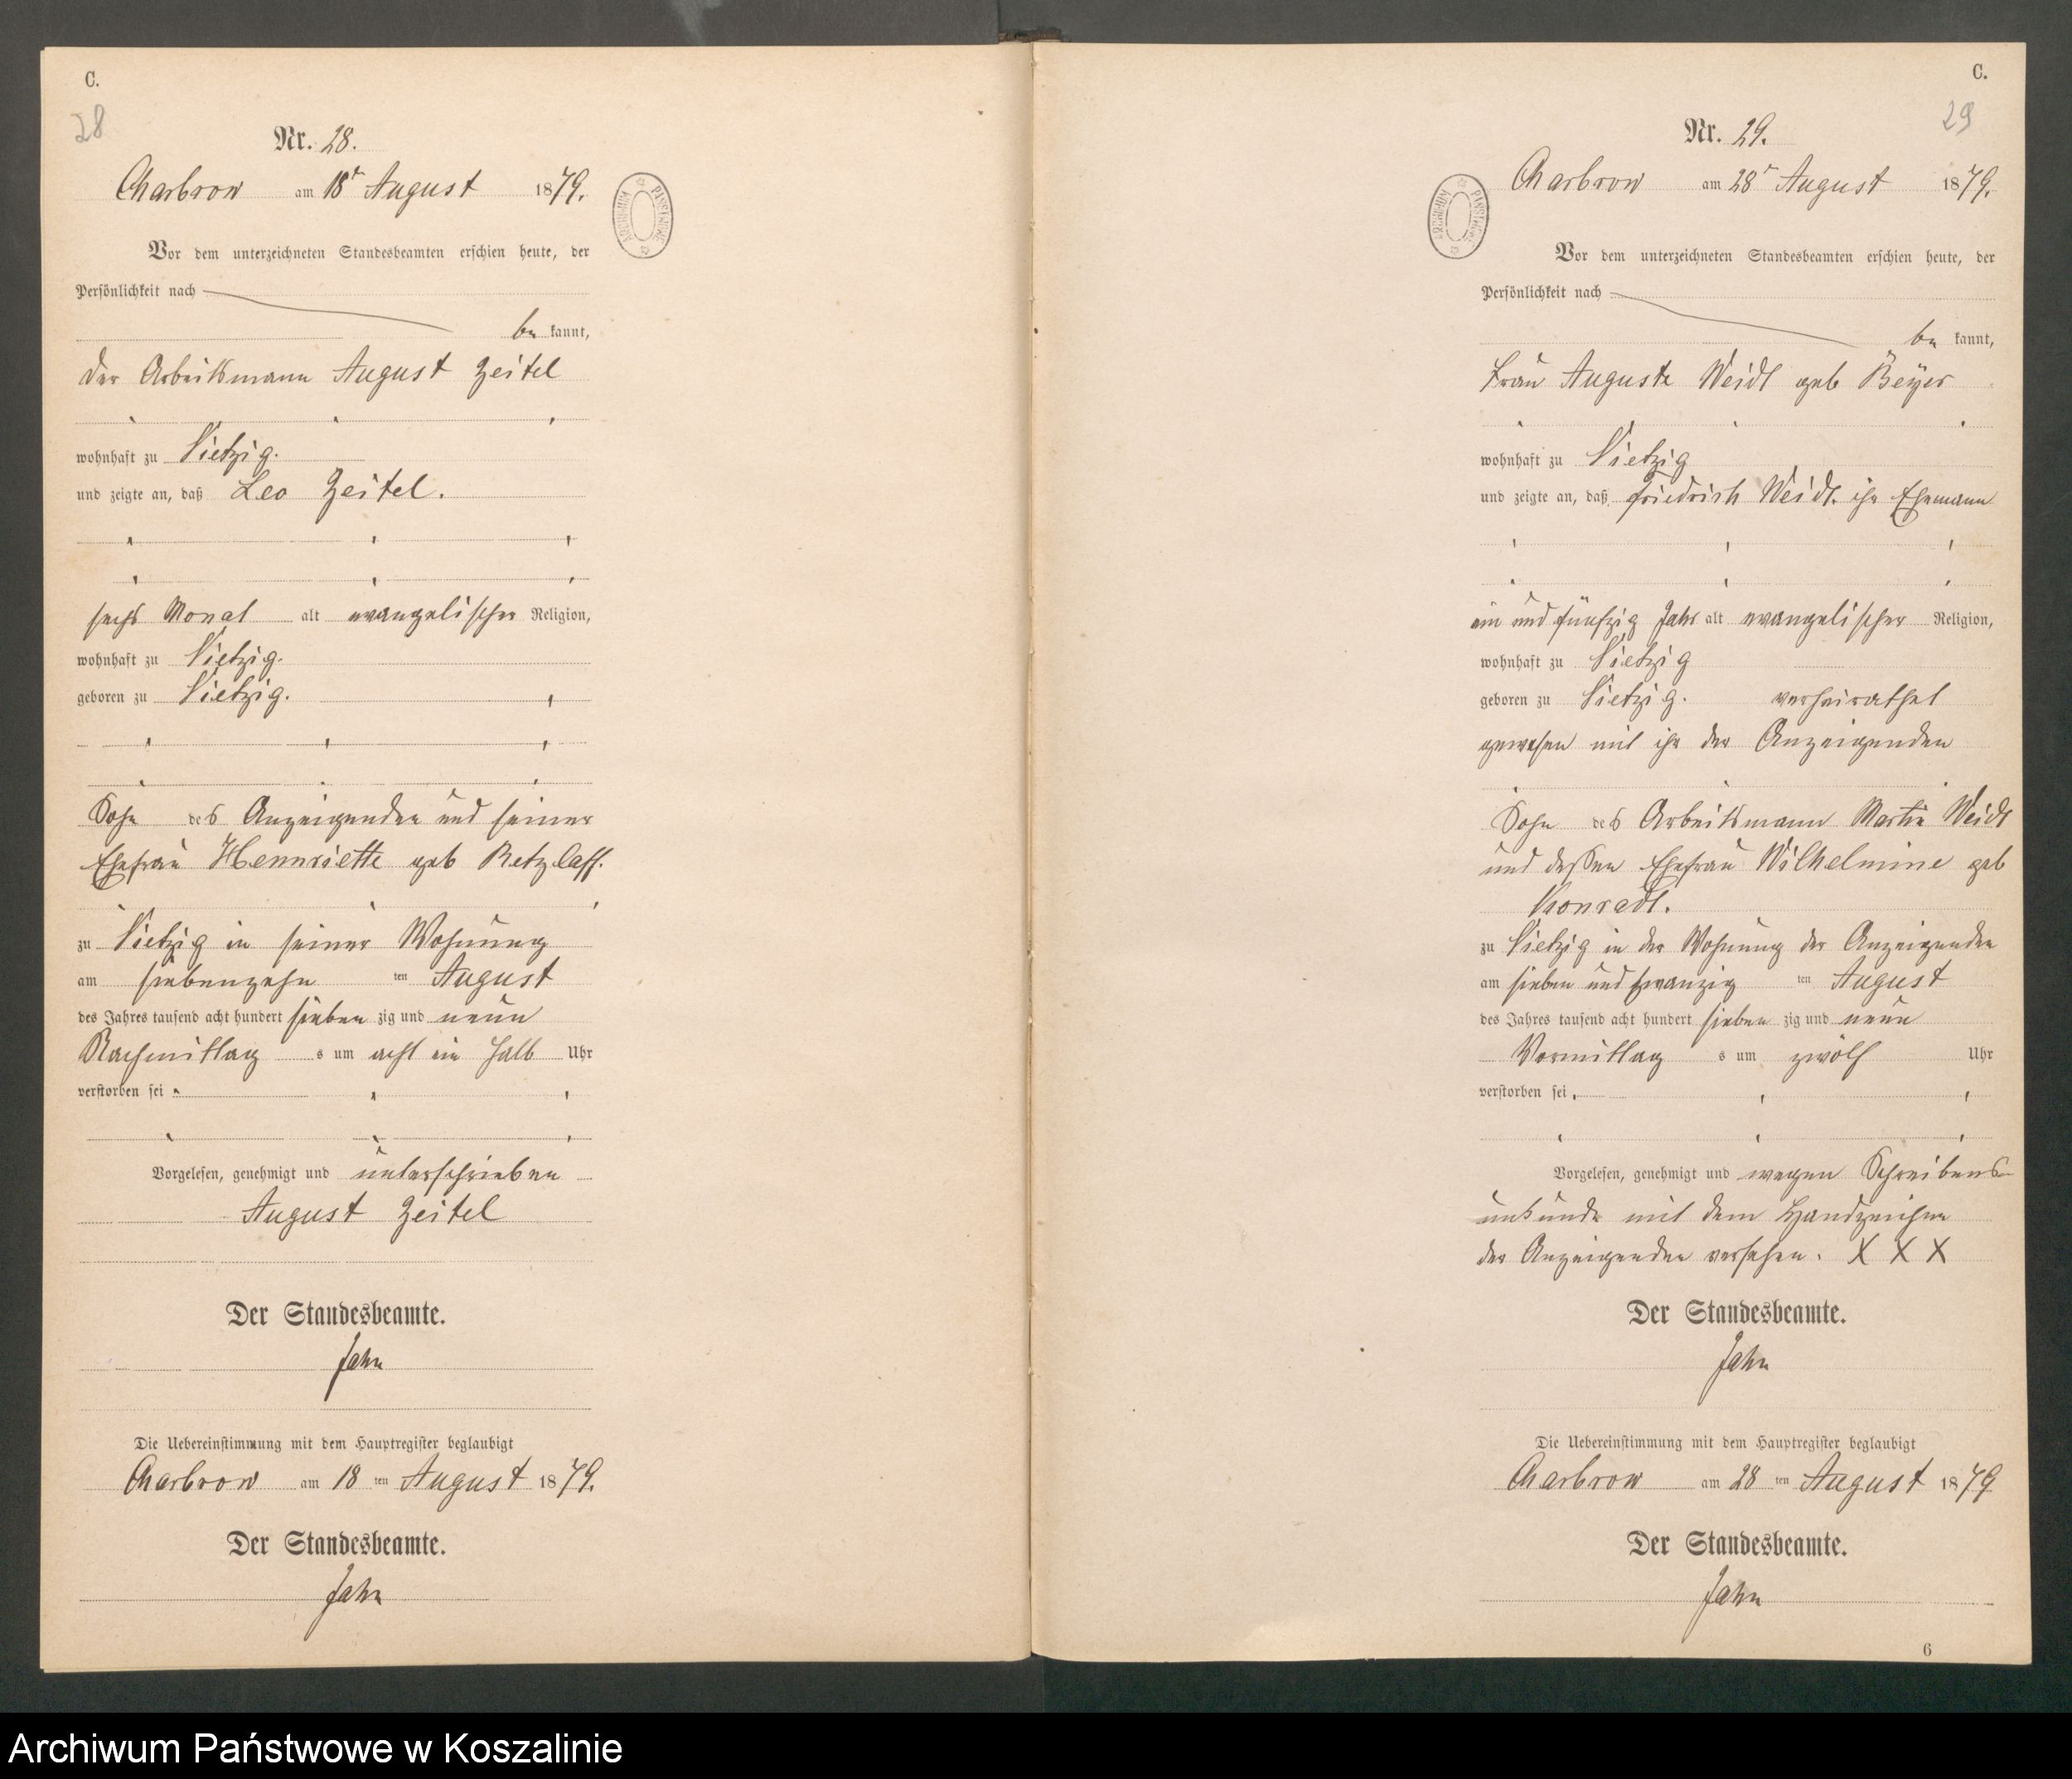 C.
28
Nr. 28.
Charbrow am 18t August 1879.
Vor dem unterzeichneten Standesbeamten erschien heute, der
Persönlichkeit nach
be kannt,
der Arbeitsmann August Zeitel
wohnhaft zu Vietzig.
und zeigte an, daß Leo Zeitel.
sechs Monat alt evangelischer Religion,
wohnhaft zu Vietzig.
geboren zu Vietzig.
Sohn des Anzeigenden und seiner
Ehefrau Hennriette geb Retzlaff.
zu Vietzig in seiner Wohnung
am siebenzehn ten August
des Jahres tausend acht hundert sieben zig und neun
Nachmittag s um acht ein halb Uhr
verstorben sei
Vorgelesen, genehmigt und unterschrieben
August Zeitel
Der Standesbeamte.
Jahn
Die Uebereinstimmung mit dem Hauptregister beglaubigt
Charbrow am 18 ten August 1879.
Der Standesbeamte.
Jahn
C.
29
Nr. 29.
Charbrow am 28t August 1879.
Vor dem unterzeichneten Standesbeamten erschien heute, der
Persönlichkeit nach
be kannt,
Frau Auguste Weidt geb Beÿer
wohnhaft zu Vietzig
und zeigte an, daß Friedrich Weidt ihr Ehemann
ein und fünfzig Jahr alt evangelischer Religion,
wohnhaft zu Vietzig
geboren zu Vietzig. verheirathet
gewesen mit ihr der Anzeigenden
Sohn des Arbeitsmann Martin Weidt
und dessen Ehefrau Wilhelmine geb
Konradt.
zu Vietzig in der Wohnung der Anzeigenden
am sieben und zwanzig ten August
des Jahres tausend acht hundert sieben zig und neun
Vormittag s um zwölf Uhr
verstorben sei
Vorgelesen, genehmigt und wegen Schreibens-
unkunde mit dem Handzeichen
der Anzeigenden versehen. X X X
Der Standesbeamte.
Jahn
Die Uebereinstimmung mit dem Hauptregister beglaubigt
Charbrow am 28 ten August 1879
Der Standesbeamte.
Jahn
6
Archiwum Państwowe w Koszalinie